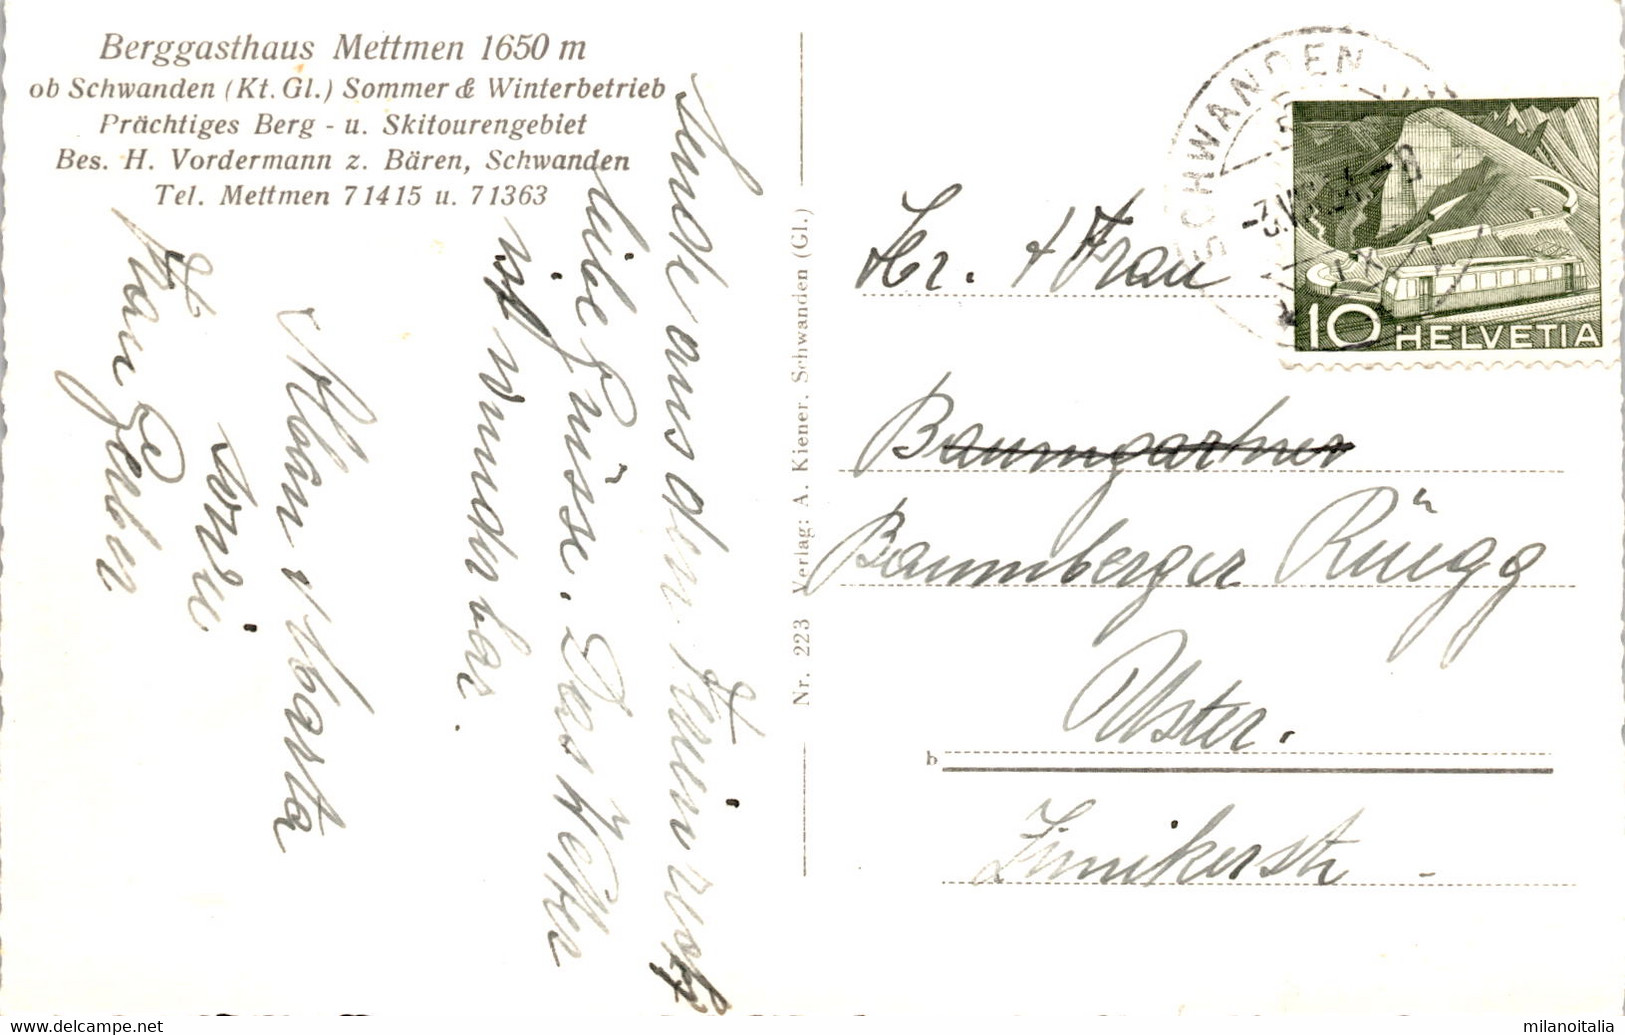 Berggasthaus Mettmen 1650 m
ob Schwanden (Kt. Gl.) Sommer & Winterbetrieb
Prächtiges Berg - u. Skitourengebiet
Bes. H. Vordermann z. Bären, Schwanden
Tel. Mettmen 7 14 15 u. 7 13 63
Sende aus dem
liebe Grüsse. Das Wetter
ist wunderbar.
sowie
Nr. 223 Verlag: A. Kiener, Schwanden (Gl.)
SCHWANDEN
10 HELVETIA
Hr. + Frau
Baumgartner
Baumberger Rüegg
Uster.
b
milanoitalia